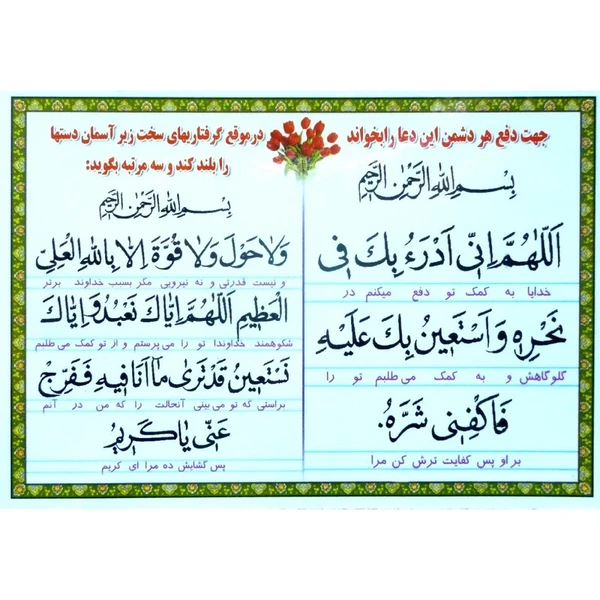 جهت دفع هر دشمن این دعا رابخواند
بِسْمِ اللهِ الرَّحْمٰنِ الرَّحیٖمِ
اَللّٰهُمَّ اِنّیٖ اَدْرَءُ بِكَ فیٖ
خدایا به کمک تو دفع میکنم در
نَحْرِهٖ وَ اَسْتَعیٖنُ بِكَ عَلَیْهِ
گلوگاهش و به کمک می طلبم تو را
فَاکْفِنیٖ شَرَّهُ.
بر او پس کفایت ترش کن مرا
در موقع گرفتاریهای سخت زیر آسمان دستها
را بلند کند و سه مرتبه بگوید:
بِسْمِ اللهِ الرَّحْمٰنِ الرَّحیٖمِ
وَلا حَوْلَ وَلا قُوَّةَ اِلّا بِاللهِ الْعَلِیِّ
و نیست قدرتی و نه نیرویی مگر بسبب خداوند برتر
الْعَظیٖمِ اَللّٰهُمَّ اِیّاكَ نَعْبُدُ وَ اِیّاكَ
شکوهمند خداوندا تو را می پرستم و از تو کمک می طلبم
نَسْتَعیٖنُ قَدْ تَرىٰ ما اَنَا فیٖهِ فَفَرِّجْ
براستی که تو می بینی آنحالت را که من در آنم
عَنّیٖ یا کَریٖمُ
پس گشایش ده مرا ای کریم